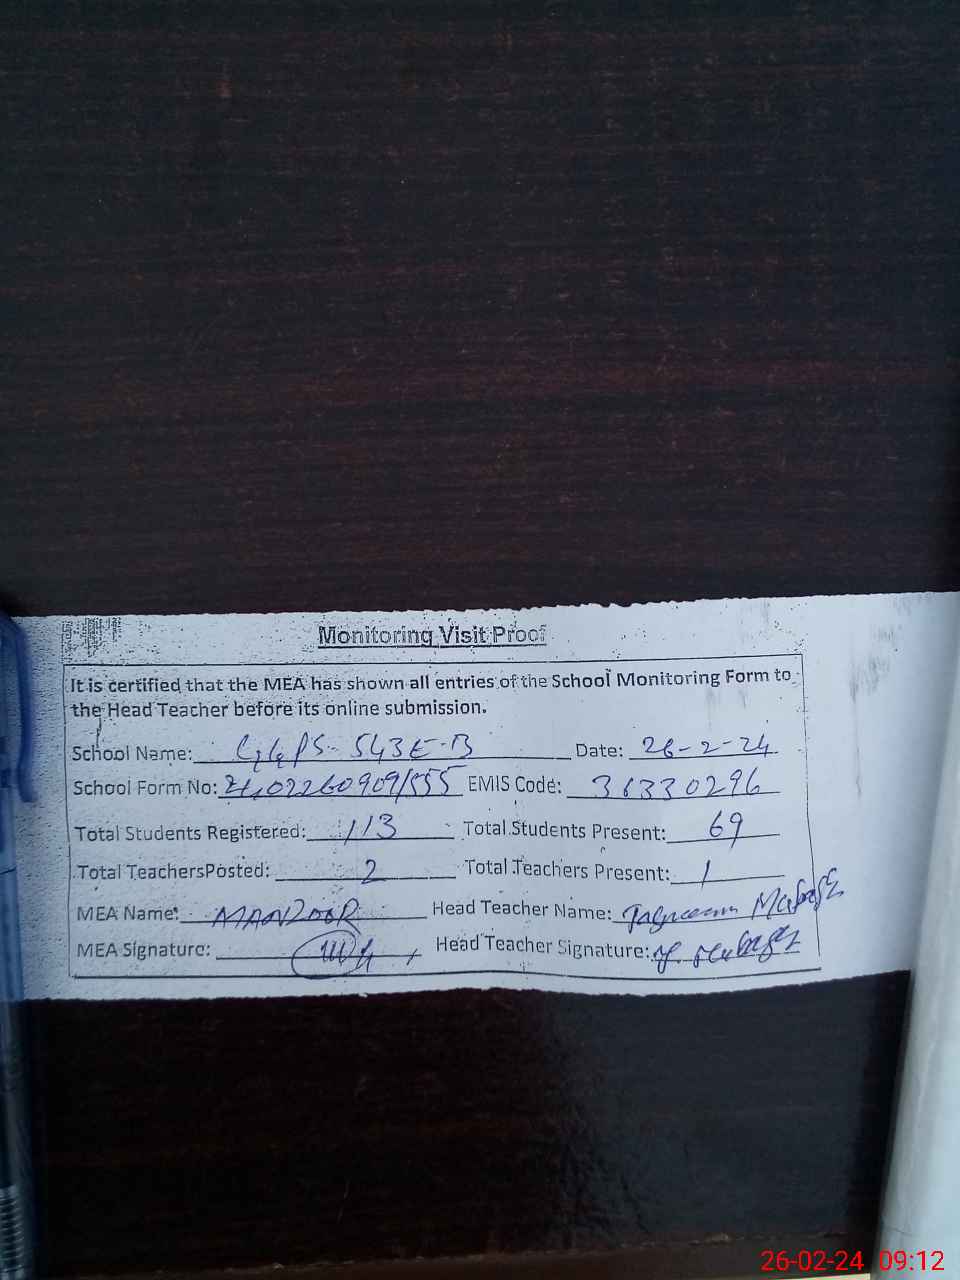 Monitoring Visit Proof
It is certified that the MEA has shown all entries of the School Monitoring Form to
the Head Teacher before its online submission.
School Name: GGPS- 543 E-B Date: 26-2-24
School Form No: EMIS Code: 36330296
Total Students Registered: 113 Total Students Present: 69
Total TeachersPosted: 2 Total Teachers Present: 1
MEA Name: MANZOOR Head Teacher Name:
MEA Signature: Head Teacher Signature:
26-02-24 09:12